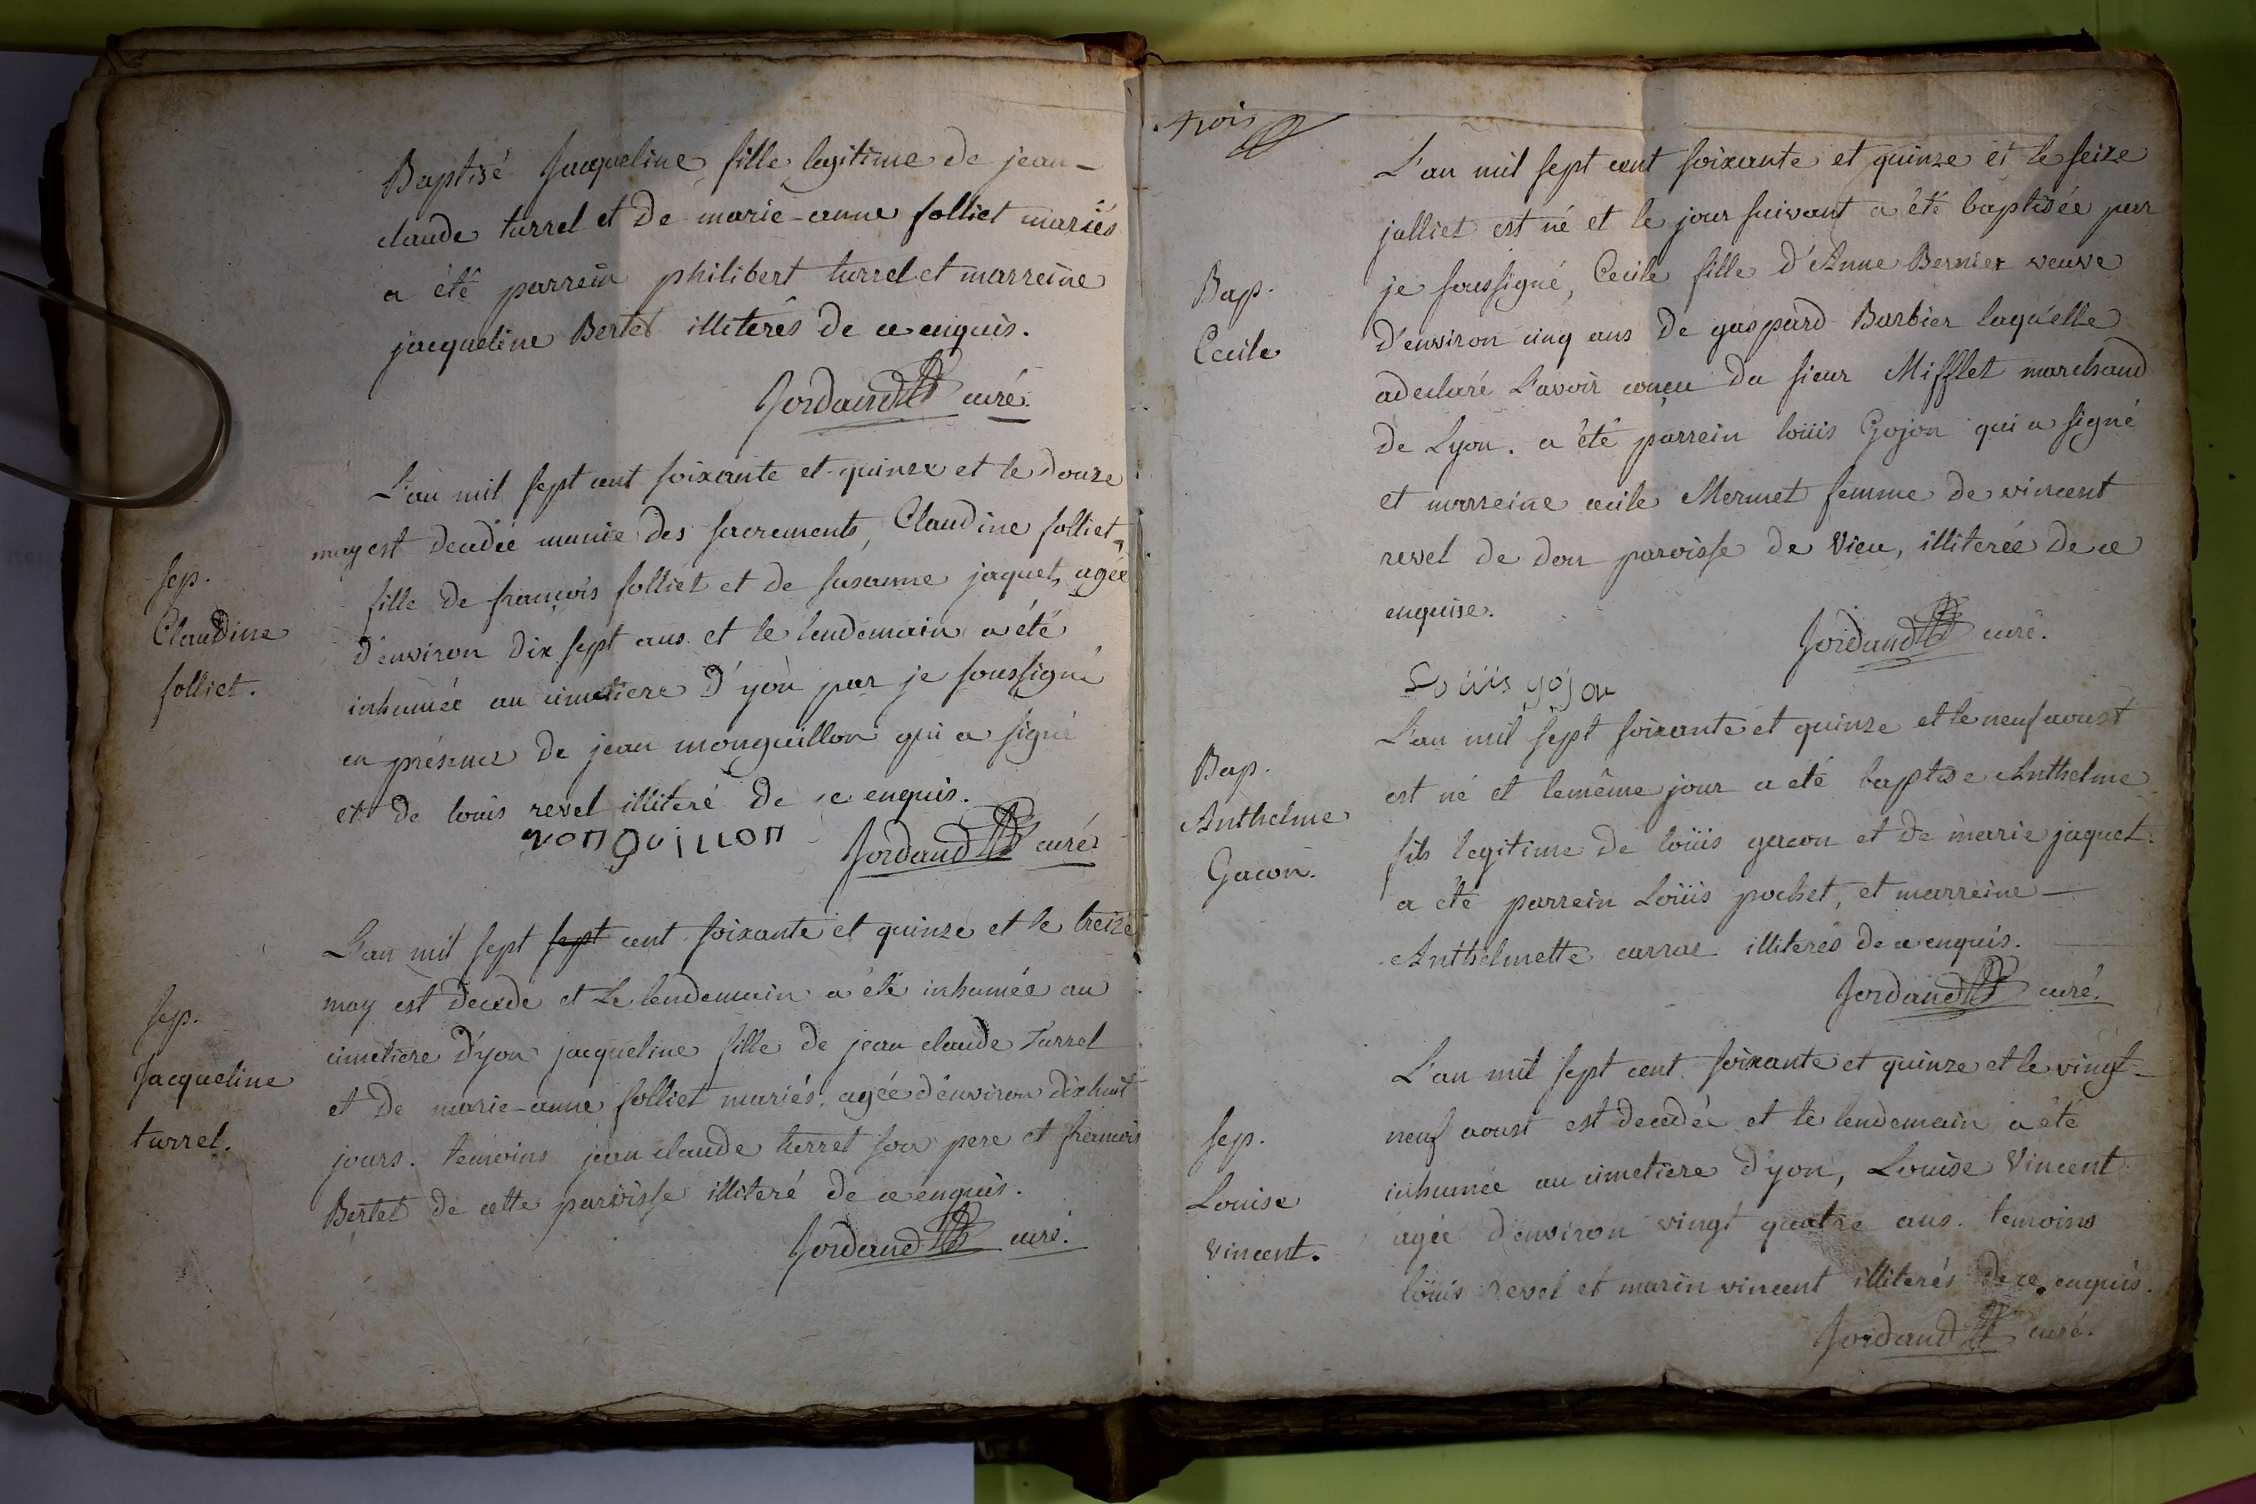 Baptisé Jacqueline fille legitime de jean-
claude turrel et de marie-anne folliet mariés
a été parrein philibert turrel et marreine
jacqueline Bertet illiterés de ce enquis.
Jordand curé.
L'an mil sept cent soixante et quinze et le douze
may est decedée munie des sacrements, Claudine folliet,
fille de françois folliet et de susanne jaquet, agée
d'environ dix sept ans et le lendemain a été
inhumée au cimetiere d'yon par je soussigné
en présence de jean monguillon qui a signé
et de louis revel illiteré de ce enquis.
sep.
Claudine
folliet.
monguillon
Jordand curé
L'an mil sept sept cent soixante et quinze et le treize
may est decedé et le lendemain a été inhumée au
cimetiere d'yon jacqueline fille de jean claude turrel
et de marie-anne folliet mariés, agée d'environ dixhuit
jours. temoins jean claude turrel son pere et françois
Bertet de cette paroisse illiteré de ce enquis.
sep.
Jacqueline
turrel.
Jordand curé.
trois
L'an mil sept cent soixante et quinze et le seize
julliet est né et le jour suivant a été baptisée par
je soussigné, Cecile fille d'Anne Bernier veuve
d'environ cinq ans de gaspard Barbier laquelle
a declaré l'avoir conçu du sieur Mifflet marchand
de Lyon. a été parrein loüis Gojon qui a signé
et marreine cecile Mermet femme de vincent
revel de don paroisse de Vieu, illiterée de ce
enquise.
Bap.
Cecile
Jordand curé.
Loüis gojon
L'an mil sept soixante et quinze et le neuf aoust
est né et le même jour a eté baptisé Anthelme
fils legitime de loüis gacon et de marie jaquet.
a été parrein Loüis pochet, et marreine
Anthelmette carrae illiterés de ce enquis.
Bap.
Anthelme
Gacon.
Jordand curé.
L'an mil sept cent soixante et quinze et le vingt-
neuf aoust est decedée et le lendemain a été
inhumée au cimetiere d'yon, Louise Vincent
agée d'environ vingt quatre ans. temoins
loüis revel et marin vincent illiterés de ce enquis.
sep.
Louise
vincent.
Jordand curé.